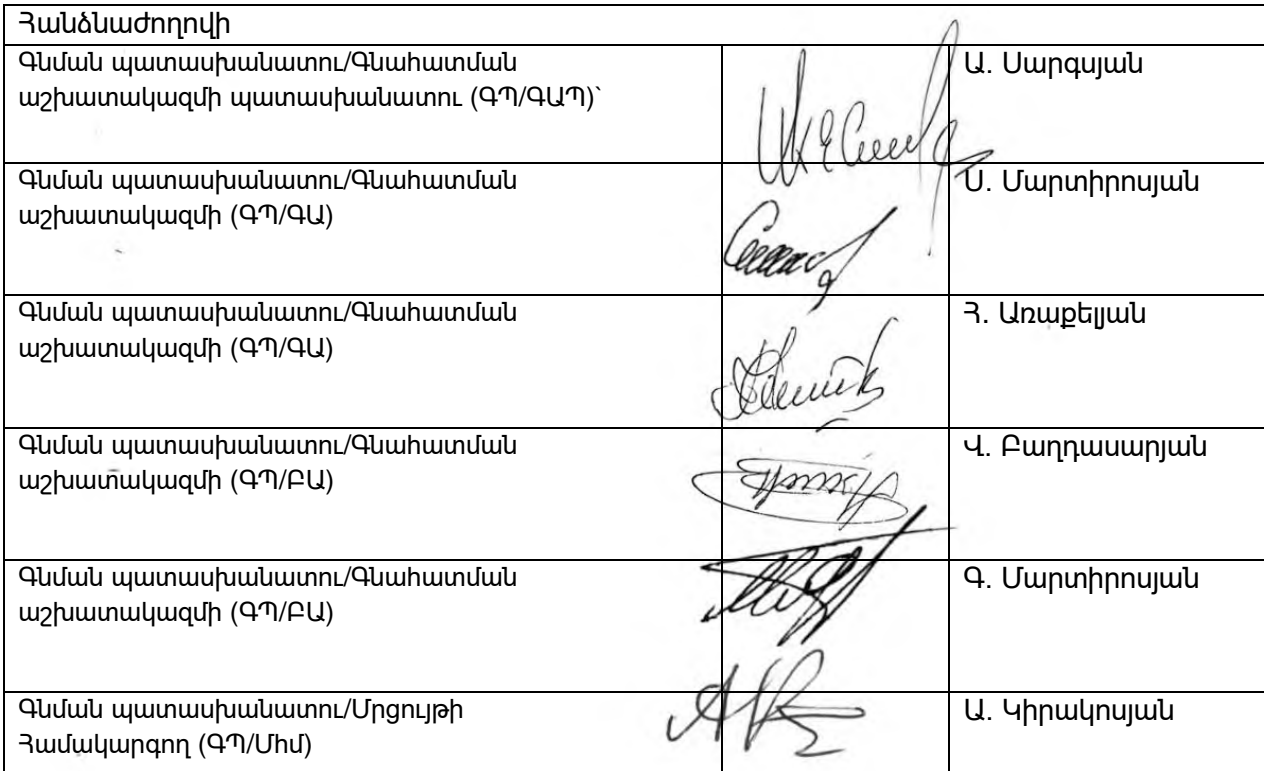 Հանձնաժողովի
Գնման պատասխանատու/Գնահատման
աշխատակազմի պատասխանատու (ԳՊ/ԳԱՊ)`
Ա. Սարգսյան
Գնման պատասխանատու/Գնահատման
աշխատակազմի (ԳՊ/ԳԱ)
Ս. Մարտիրոսյան
Գնման պատասխանատու/Գնահատման
աշխատակազմի (ԳՊ/ԳԱ)
Հ. Առաքելյան
Գնման պատասխանատու/Գնահատման
աշխատակազմի (ԳՊ/ԲԱ)
Վ. Բաղդասարյան
Գնման պատասխանատու/Գնահատման
աշխատակազմի (ԳՊ/ԲԱ)
Գ. Մարտիրոսյան
Գնման պատասխանատու/Մրցույթի
Համակարգող (ԳՊ/Մհմ)
Ա. Կիրակոսյան